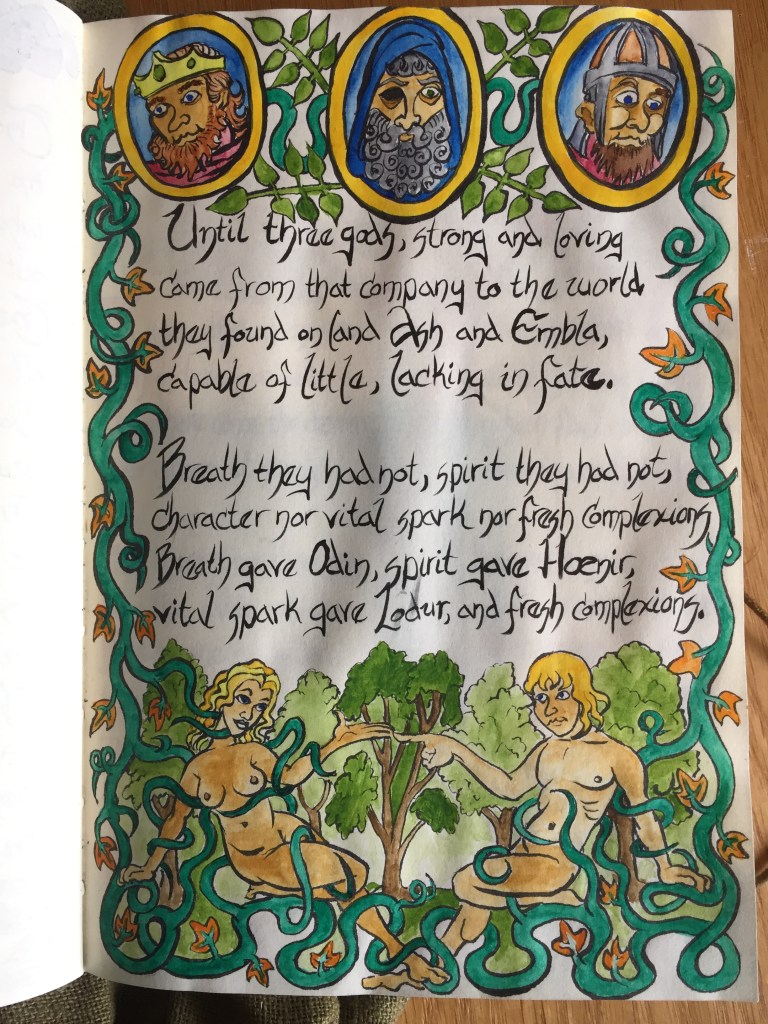 Until three gods, strong and loving
came from that company to the world
they found on land Ash and Embla,
capable of little, lacking in fate.
Breath they had not, spirit they had not,
character nor vital spark nor fresh complexions
Breath gave Odin, spirit gave Hoenir,
vital spark gave Lodur, and fresh complexions.